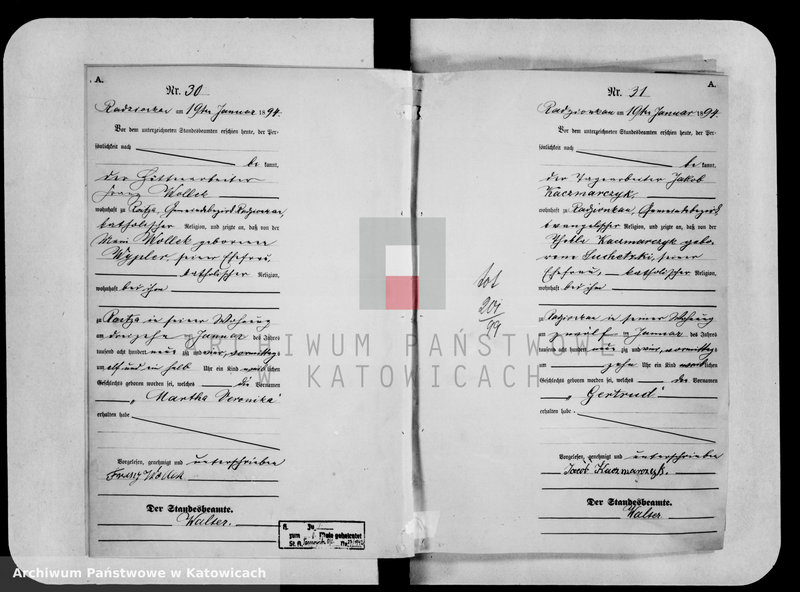 A.
Nr. 30
Radzionkau am 19ten Januar 1894.
Vor dem unterzeichneten Standesbeamten erschien heute, der Per-
sönlichkeit nach
be kannt,
der Hüttenarbeiter
Franz Wollek
wohnhaft zu Rojza, Gemeindebezirk Radzionkau,
katholischer Religion, und zeigte an, daß von der
Marie Wollek geborenen
Wypler, seiner Ehefrau,
katholischer Religion,
wohnhaft bei ihm
zu Rojza in seiner Wohnung
am dreizehn ten Januar des Jahres
tausend acht hundert neun zig und vier, vormittags
um elf und ein halb Uhr ein Kind weiblichen
Geschlechts geboren worden sei, welches die Vornamen
„Martha Veronika“
erhalten habe
Vorgelesen, genehmigt und unterschrieben
Franz Wollek
Der Standesbeamte.
Walter.
zum Male geheiratet
St. A. No.
A.
Nr. 31
Radzionkau am 19ten Januar 1894.
Vor dem unterzeichneten Standesbeamten erschien heute, der Per-
sönlichkeit nach
be kannt,
der Tagearbeiter Jakob
Kaczmarczyk,
wohnhaft zu Radzionkau, Gemeindebezirk
evangelischer Religion, und zeigte an, daß von der
Thekla Kaczmarczyk gebo-
renen Suchetzki, seiner
Ehefrau, katholischer Religion,
wohnhaft bei ihm
zu Radzionkau in seiner Wohnung
am zwölf ten Januar des Jahres
tausend acht hundert neun zig und vier, vormittags
um zehn Uhr ein Kind weiblichen
Geschlechts geboren worden sei, welches den Vornamen
„Gertrud“
erhalten habe.
Vorgelesen, genehmigt und unterschrieben
Jacob Kaczmarczyk.
Der Standesbeamte.
Walter
tot
201
99
ARCHIWUM PAŃSTWOWE
W KATOWICACH
Archiwum Państwowe w Katowicach